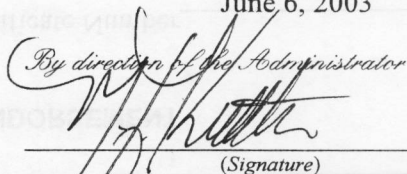 June 6, 2003
By direction of the Administrator
(Signature)